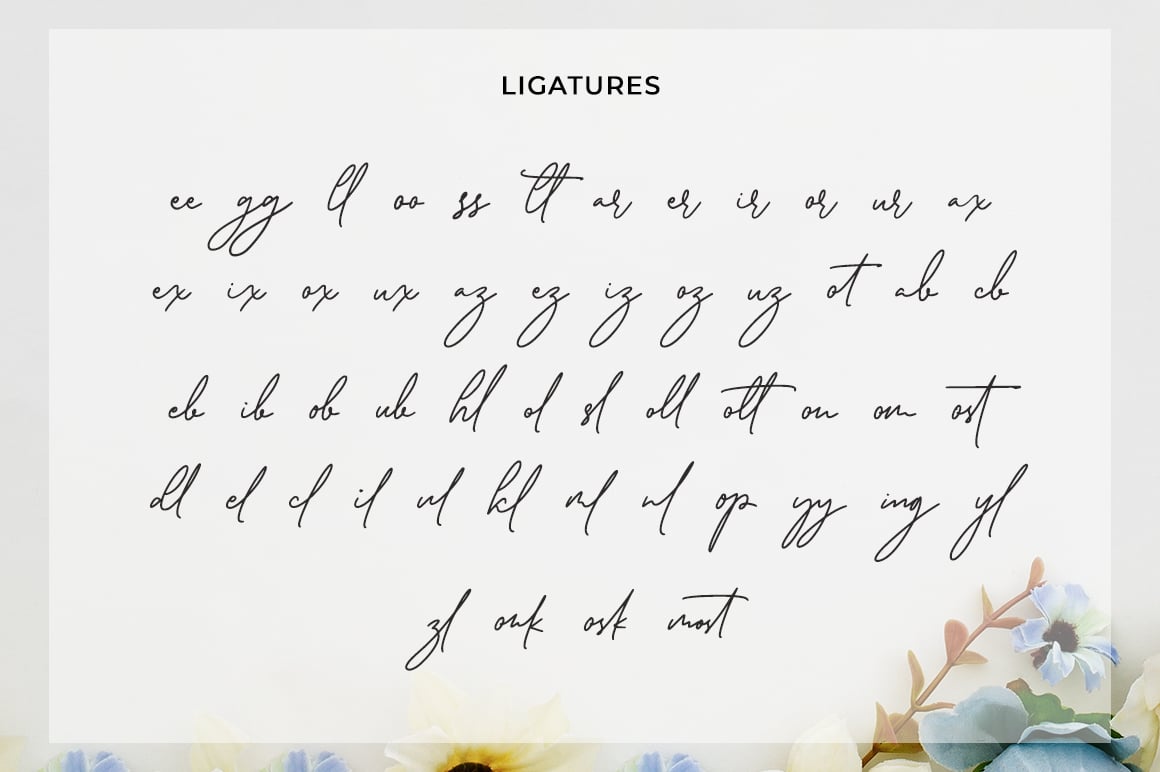 LIGATURES
ee gg ll oo ss tt ar er ir or ur ax
ex ix ox ux az ez iz oz uz ot ab cb
eb ib ob ub hl ol sl oll ott on om ost
dl el cl il ul kl ml nl op yy ing yl
zl onk osk most